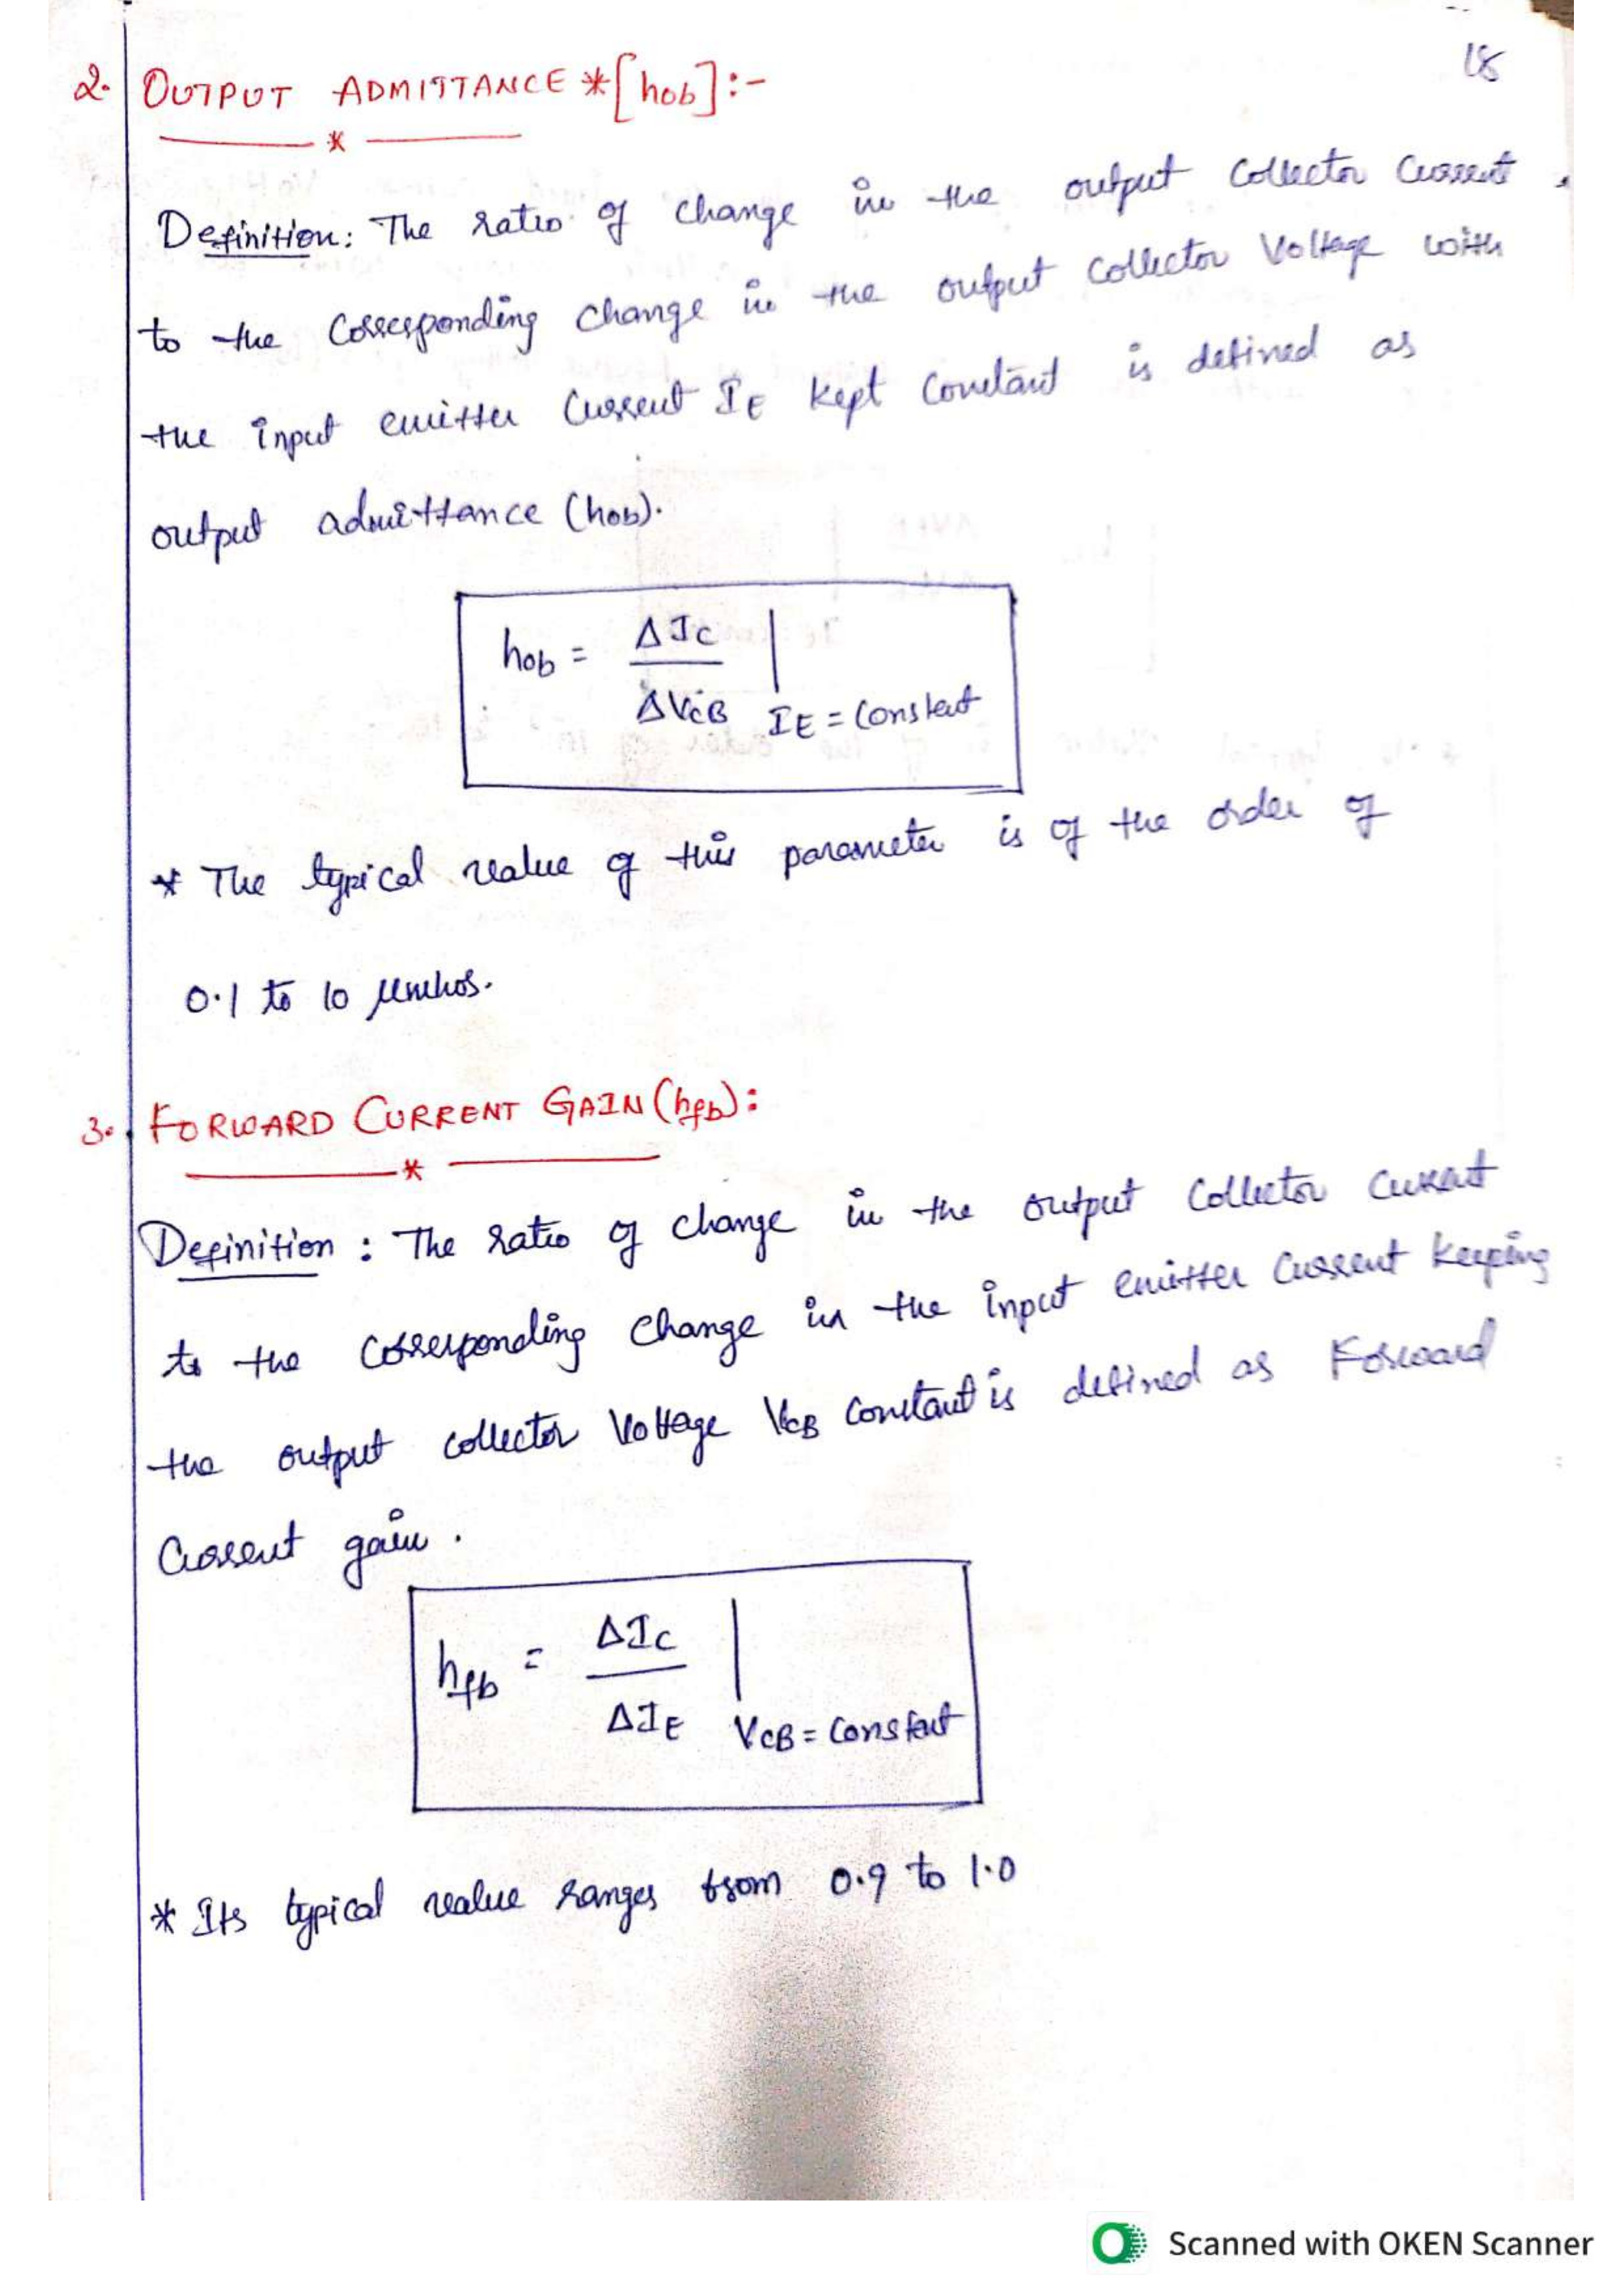 18
2. OUTPUT ADMITTANCE *[hob]:-
*
Definition: The ratio of change in the output collector current
to the corresponding change in the output collector voltage with
the input emitter current IE kept constant is defined as
output admittance (hob).
hob = ΔIC / ΔVCB | IE = constant
* The typical value of this parameter is of the order of
0.1 to 10 μmhos.
3. FORWARD CURRENT GAIN (hfb):
*
Definition: The ratio of change in the output collector current
to the corresponding change in the input emitter current keeping
the output collector voltage VCB constant is defined as Forward
current gain.
hfb = ΔIC / ΔIE | VCB = constant
* Its typical value ranges from 0.9 to 1.0
Scanned with OKEN Scanner